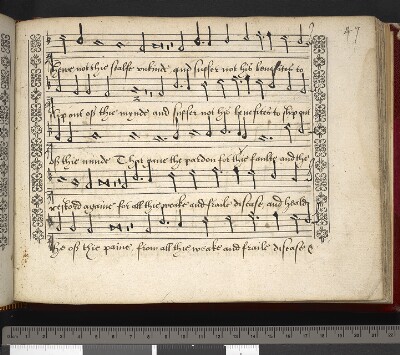 47
Shewe not thie selfe unkinde and suffer not his benefites to
slip out of thie mynde and suffer not his benefites to slip out
of thie minde That gave the pardon for thie faults and the
restord againe for all thie weake and fraile disease, and heald
the of thie paine, from all thie weake and fraile disease